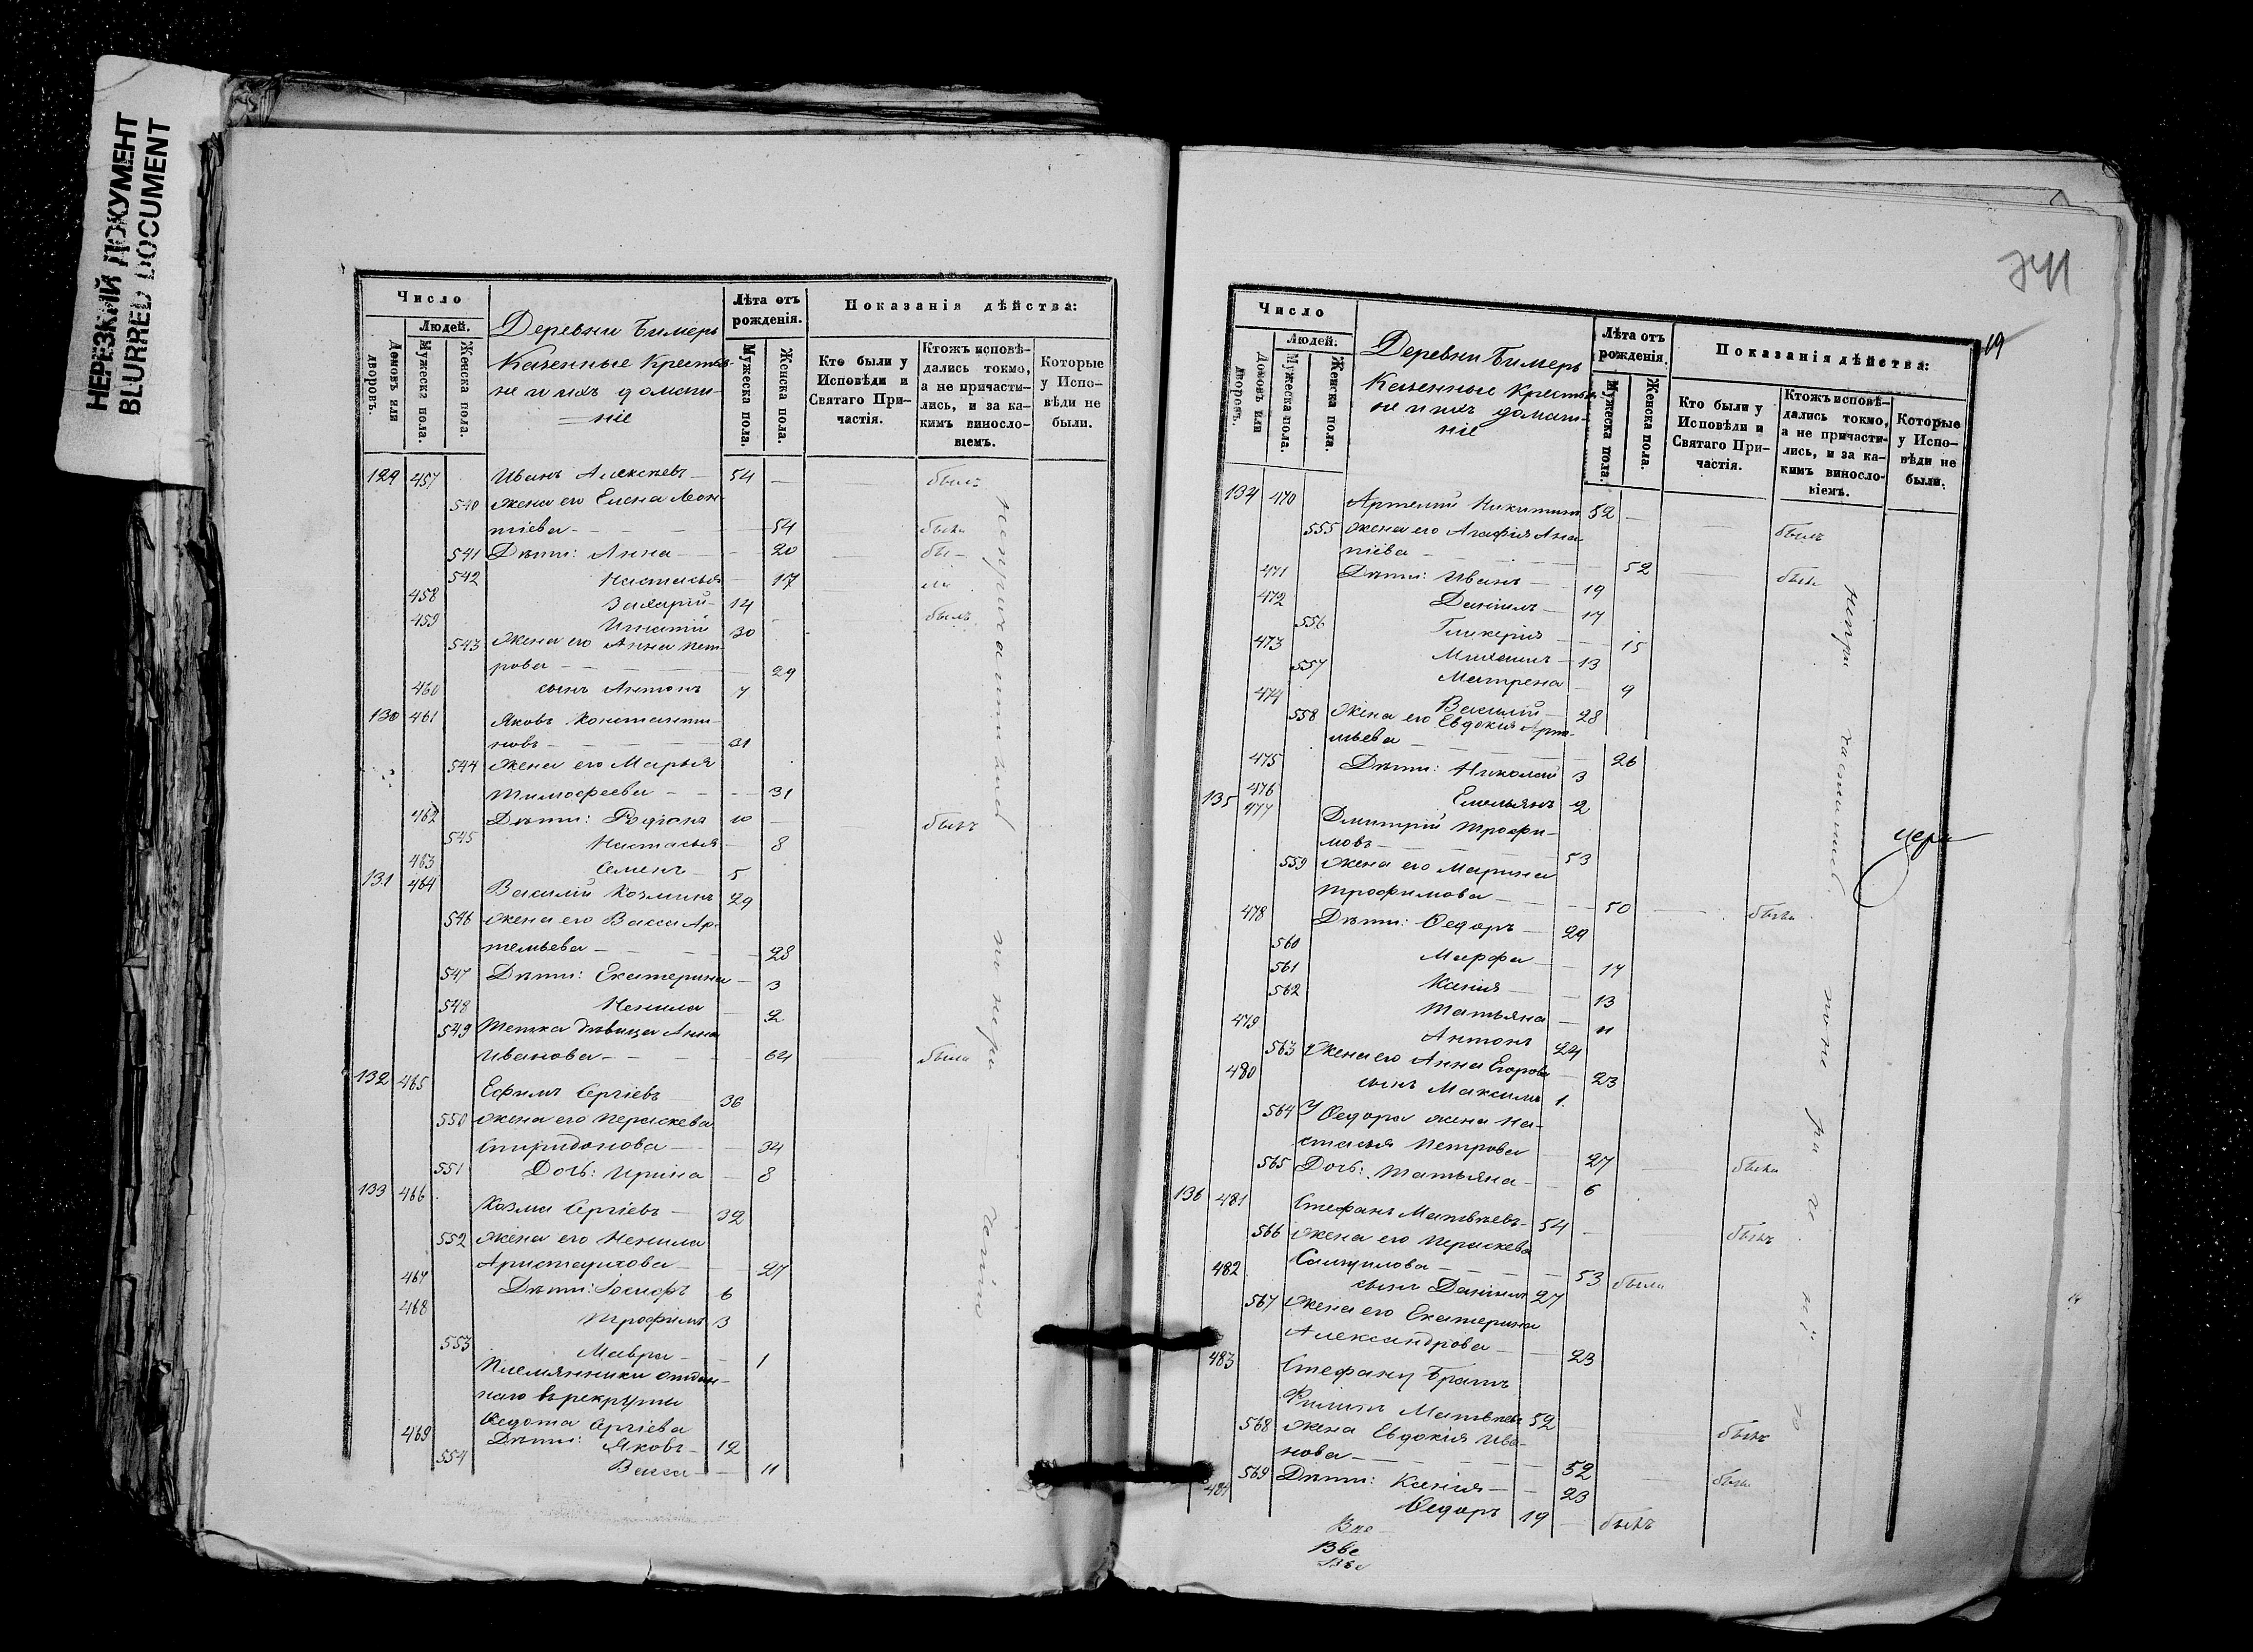 НЕРЕЗКИЙ ДОКУМЕНТ
BLURRED DOCUMENT
Число
Людей.
Домовъ или дворовъ.
Мужеска пола.
Женска пола.
Деревни Бимерь
Казенные Крестья-
не и ихъ домаш-
ніе
Лѣта отъ рожденія.
Мужеска пола.
Женска пола.
Показанія дѣйства:
Кто были у Исповѣди и Святаго При-частія.
Ктожъ исповѣ-дались токмо, а не причасти-лись, и за ка-кимъ винослo-віемъ.
Которые у Испо-вѣди не были.
129 457 Иванъ Алексѣевъ 54 — былъ
540 жена его Елена Леон-
тіева 54 была
541 Дѣти: Анна 20 бы-
542 Настасья 17 ла
458 Захарій 14
459 Игнатій 30 былъ
543 жена его Анна Пет-
рова 29
460 сынъ Антонъ 7
130 461 Яковъ Константи-
новъ 31
544 жена его Марья
Тимофеева 31
462 Дѣти: Родіонъ 10 былъ
545 Настасья 8
463 Семенъ 5
131 464 Василій Козминъ 29
546 жена его Васса Ар-
темьева 28
547 Дѣти: Екатерина 3
548 Ненила 2
549 Тетка дѣвица Анна
Иванова 64 была
132 465 Ефимъ Сергіевъ 36
550 жена его Параскева
Спиридонова 34
551 Дочь: Ирина 8
133 466 Козма Сергіевъ 32
552 жена его Ненила
Аристархова 27
467 Дѣти: Іосифъ 6
468 Трофимъ 3
553 Мавра 1
Племянники отдан-
наго въ рекруты
Ѳедота Сергіева
469 Дѣти: Яковъ 12
554 Васса 11
741
19
Число
Людей.
Домовъ или дворовъ.
Мужеска пола.
Женска пола.
Деревни Бимерь
Казенные Крестья-
не и ихъ домаш-
ніе
Лѣта отъ рожденія.
Мужеска пола.
Женска пола.
Показанія дѣйства:
Кто были у Исповѣди и Святаго При-частія.
Ктожъ исповѣ-дались токмо, а не причасти-лись, и за ка-кимъ винослo-віемъ.
Которые у Испо-вѣди не были.
134 470 Артемій Никитинъ 52 — былъ
555 жена его Агафія Ана-
ніева 52 была
471 Дѣти: Иванъ 19
472 Даніилъ 17
556 Гликерія 15
473 Михаилъ 13
557 Матрена 9
474 Василій 28
558 Жена его Евдокія Арте-
мьева 26
475 Дѣти: Николай 3
476 Емельянъ 2
135 477 Дмитрій Трофи-
мовъ 53
559 жена его Марина
Трофимова 50 была
478 Дѣти: Ѳедоръ 29
560 Марфа 17
561 Ксенія 13
562 Татьяна 11
479 Антонъ 24
563 Жена его Анна Егорова 23
480 сынъ Максимъ 1.
564 У Ѳедора жена На-
стасья Петрова 27 была
565 Дочь: Татьяна 6
136 481 Стефанъ Матвѣевъ 54 былъ
566 жена его Параскева
Самуилова 53 была
482 сынъ Даніилъ 27
567 Жена его Екатерина
Александрова 23
483 Стефану братъ
Филипъ Матвѣевъ 52 былъ
568 жена Евдокія Ива-
нова 52 была
569 Дѣти: Ксенія 23
484 Ѳедоръ 19 былъ